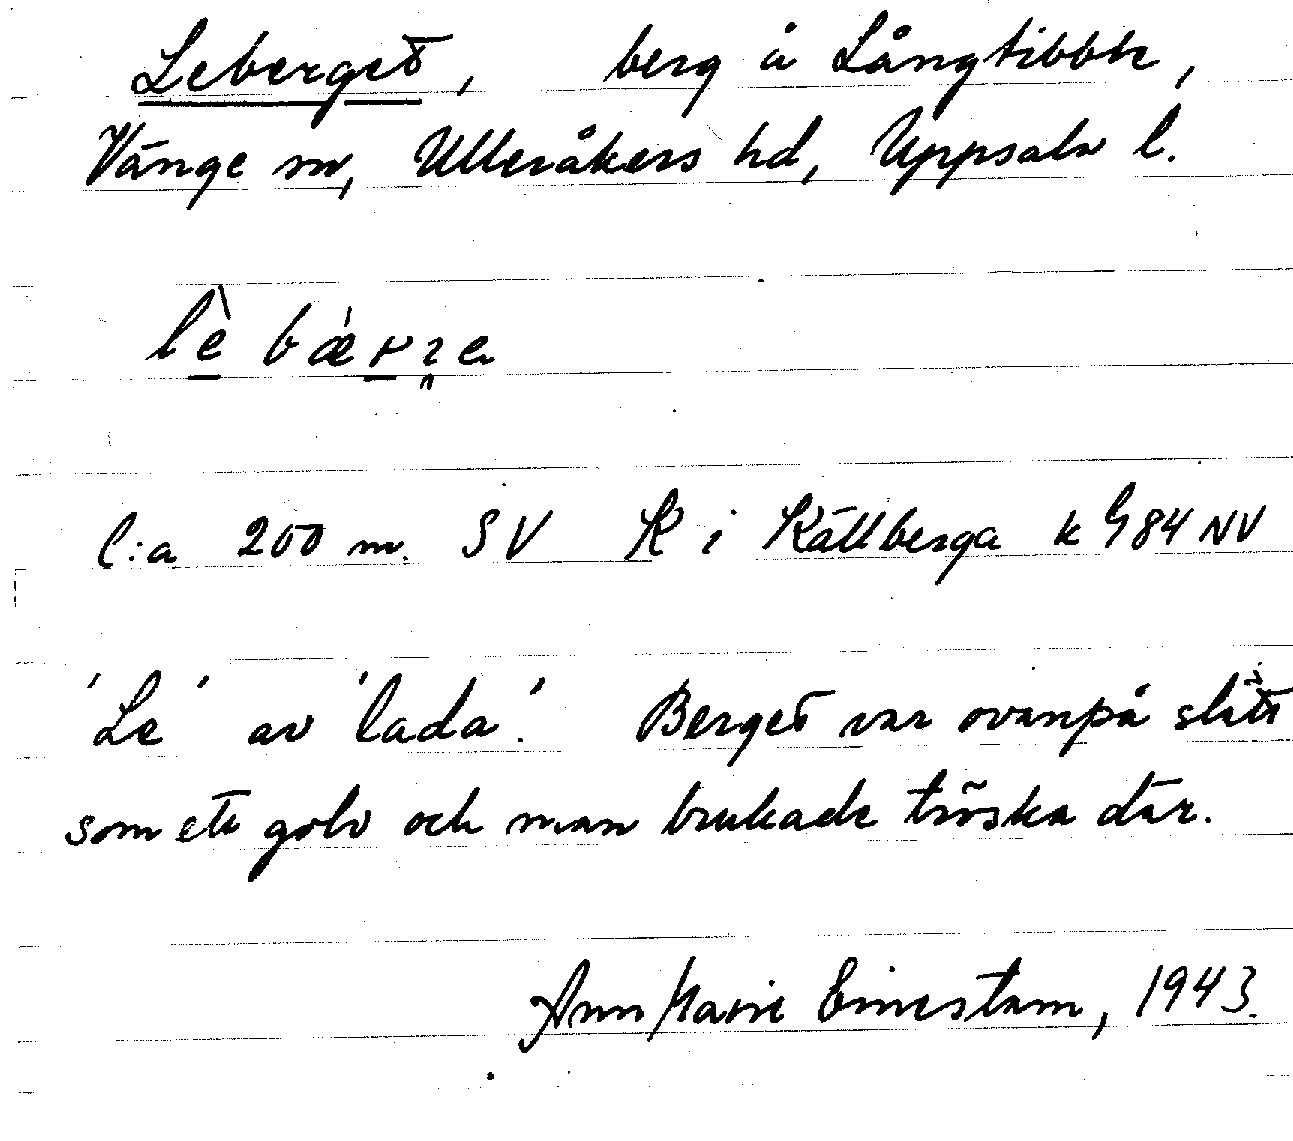 Leberget, berg å Långtibble,
Vänge sn, Ulleråkers hd, Uppsala l.
lè bǽrɜe
C:a 200 m. SV K i Källberga k 984 NV
'Le' av 'lada'. Berget var ovanpå slätt
som ett golv och man brukade tröska där.
Ann Marie Einestam, 1943.